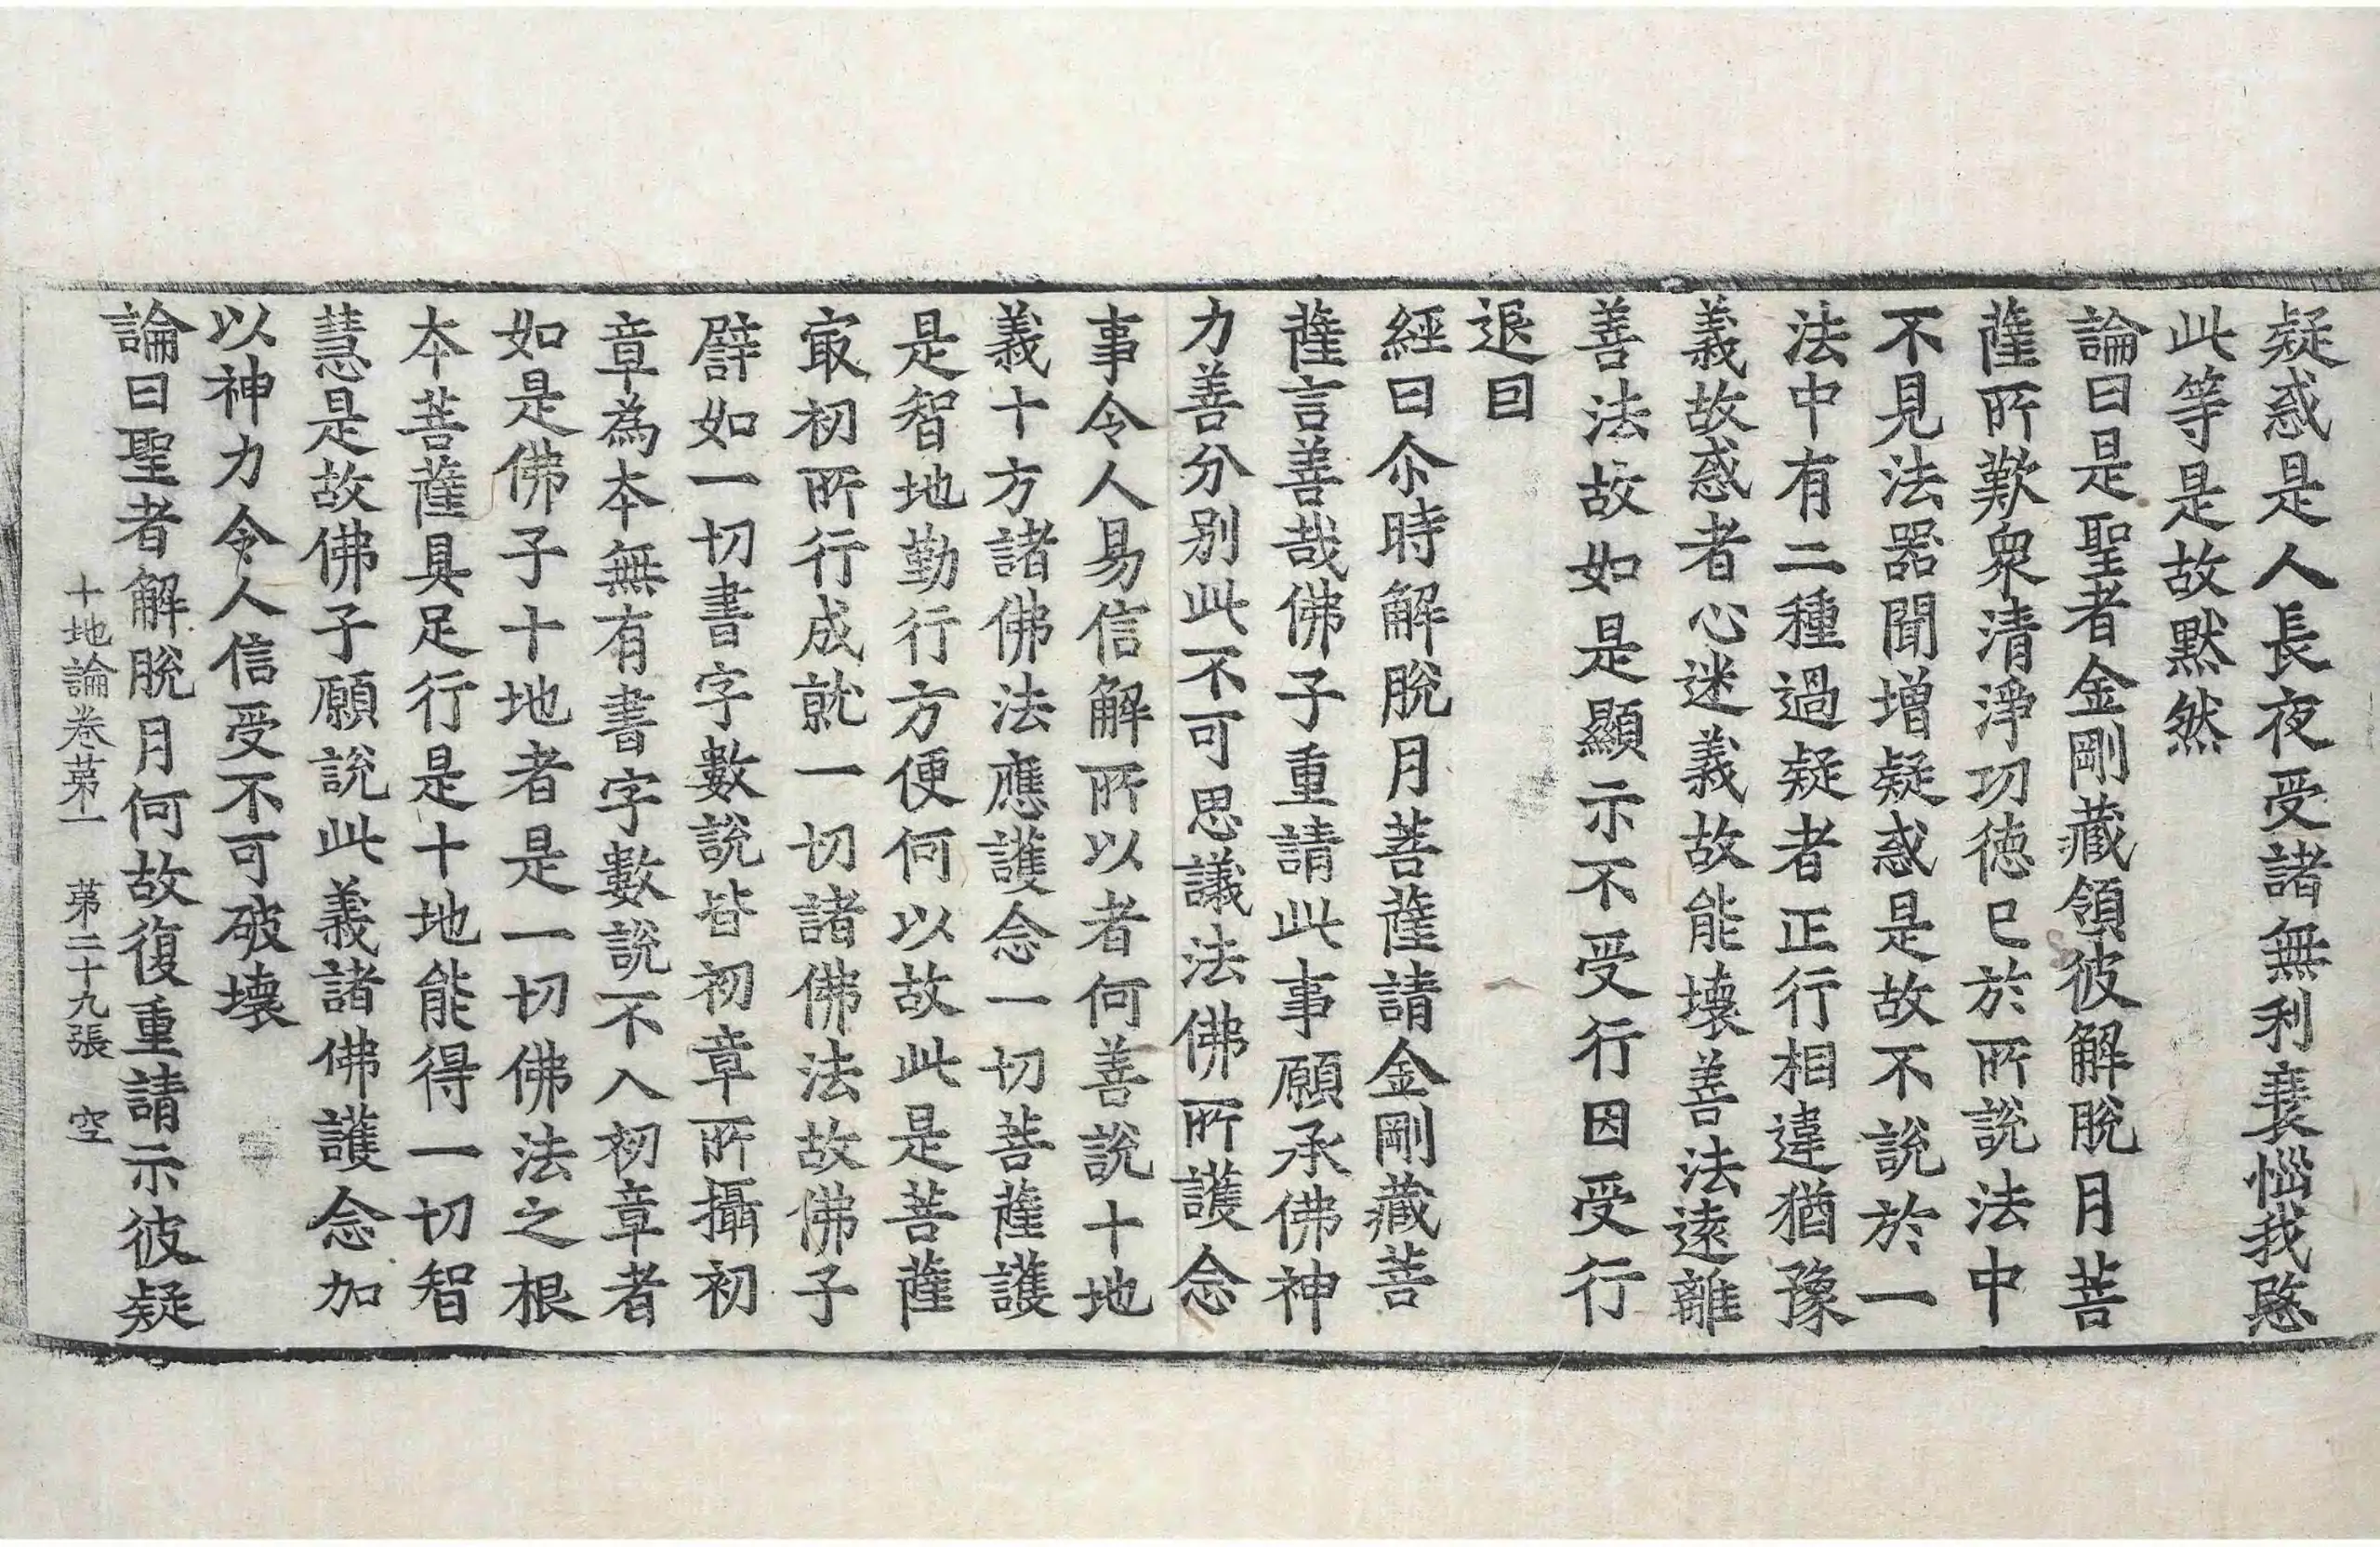 疑惑是人長夜受諸無利衰惱我愍
此等是故默然
論曰是聖者金剛藏領彼解脫月菩
薩所歎衆清淨功德已於所說法中
不見法器聞增疑惑是故不說於一
法中有二種過疑者正行相違猶豫
義故惑者心迷義故能壞善法遠離
善法故如是顯示不受行因受行
退因
經曰尒時解脫月菩薩請金剛藏菩
薩言善哉佛子重請此事願承佛神
力善分別此不可思議法佛所護念
事令人易信解所以者何善說十地
義十方諸佛法應護念一切菩薩護
是智地勤行方便何以故此是菩薩
冣初所行成就一切諸佛法故佛子
譬如一切書字數說皆初章所攝初
章為本無有書字數說不入初章者
如是佛子十地者是一切佛法之根
本菩薩具足行是十地能得一切智
慧是故佛子願說此義諸佛護念加
以神力令人信受不可破壞
論曰聖者解脫月何故復重請示彼疑
十地論卷第一 第二十九張 空